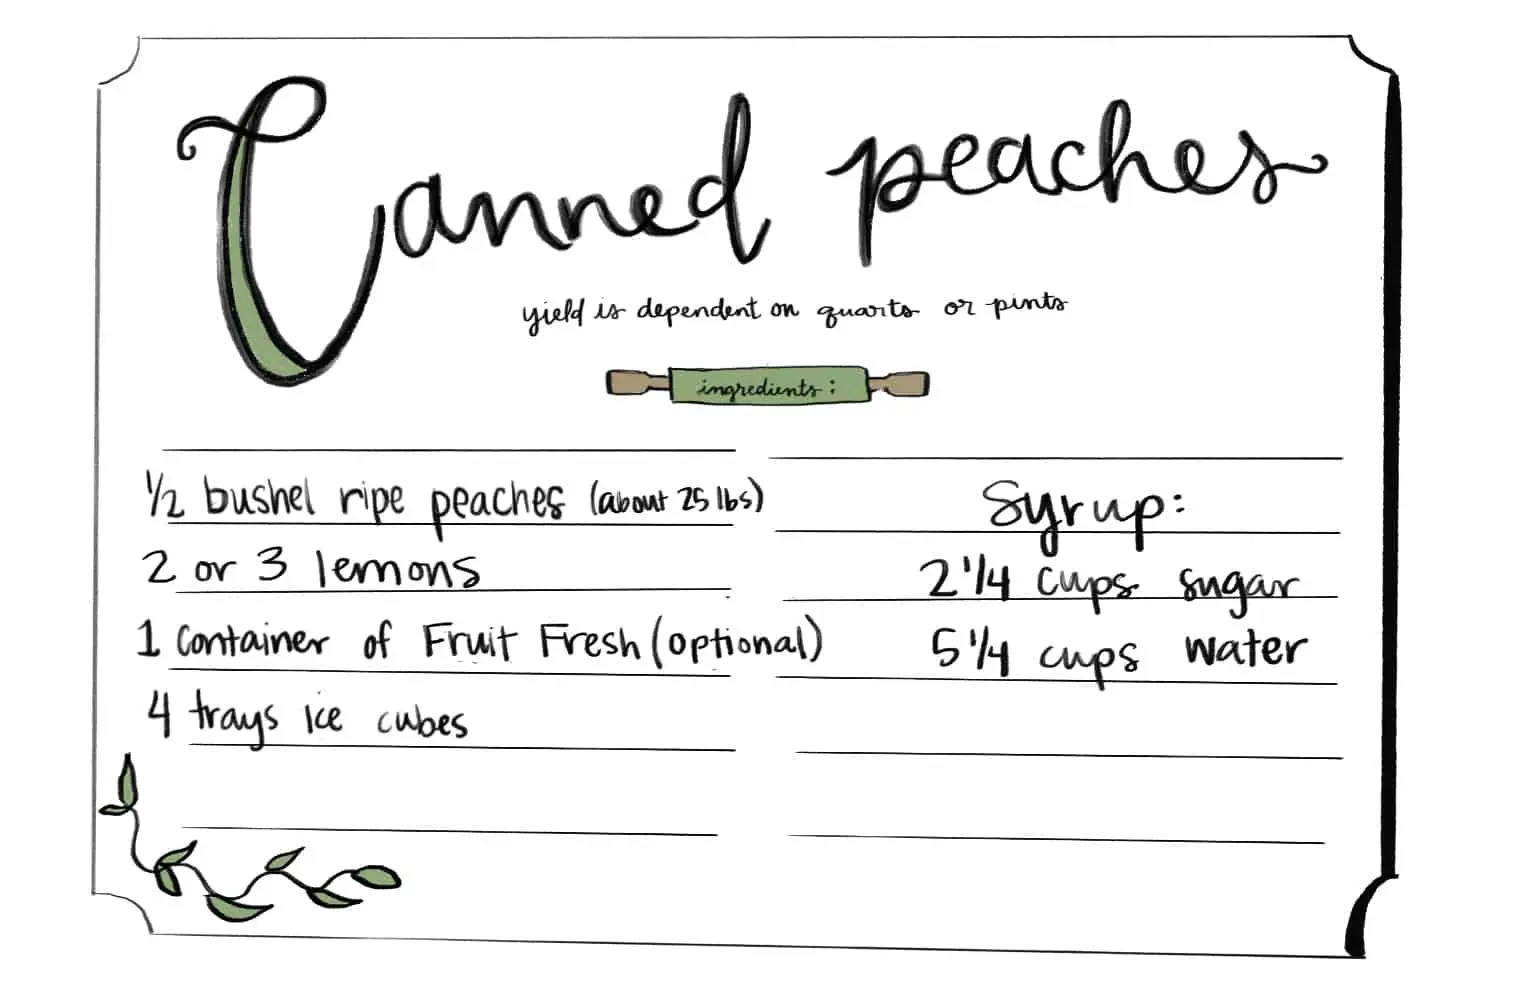 Canned peaches
yield is dependent on quarts or pints
ingredients:
1/2 bushel ripe peaches (about 25 lbs)
2 or 3 lemons
1 container of Fruit Fresh (optional)
4 trays ice cubes
Syrup:
2 1/4 cups sugar
5 1/4 cups water